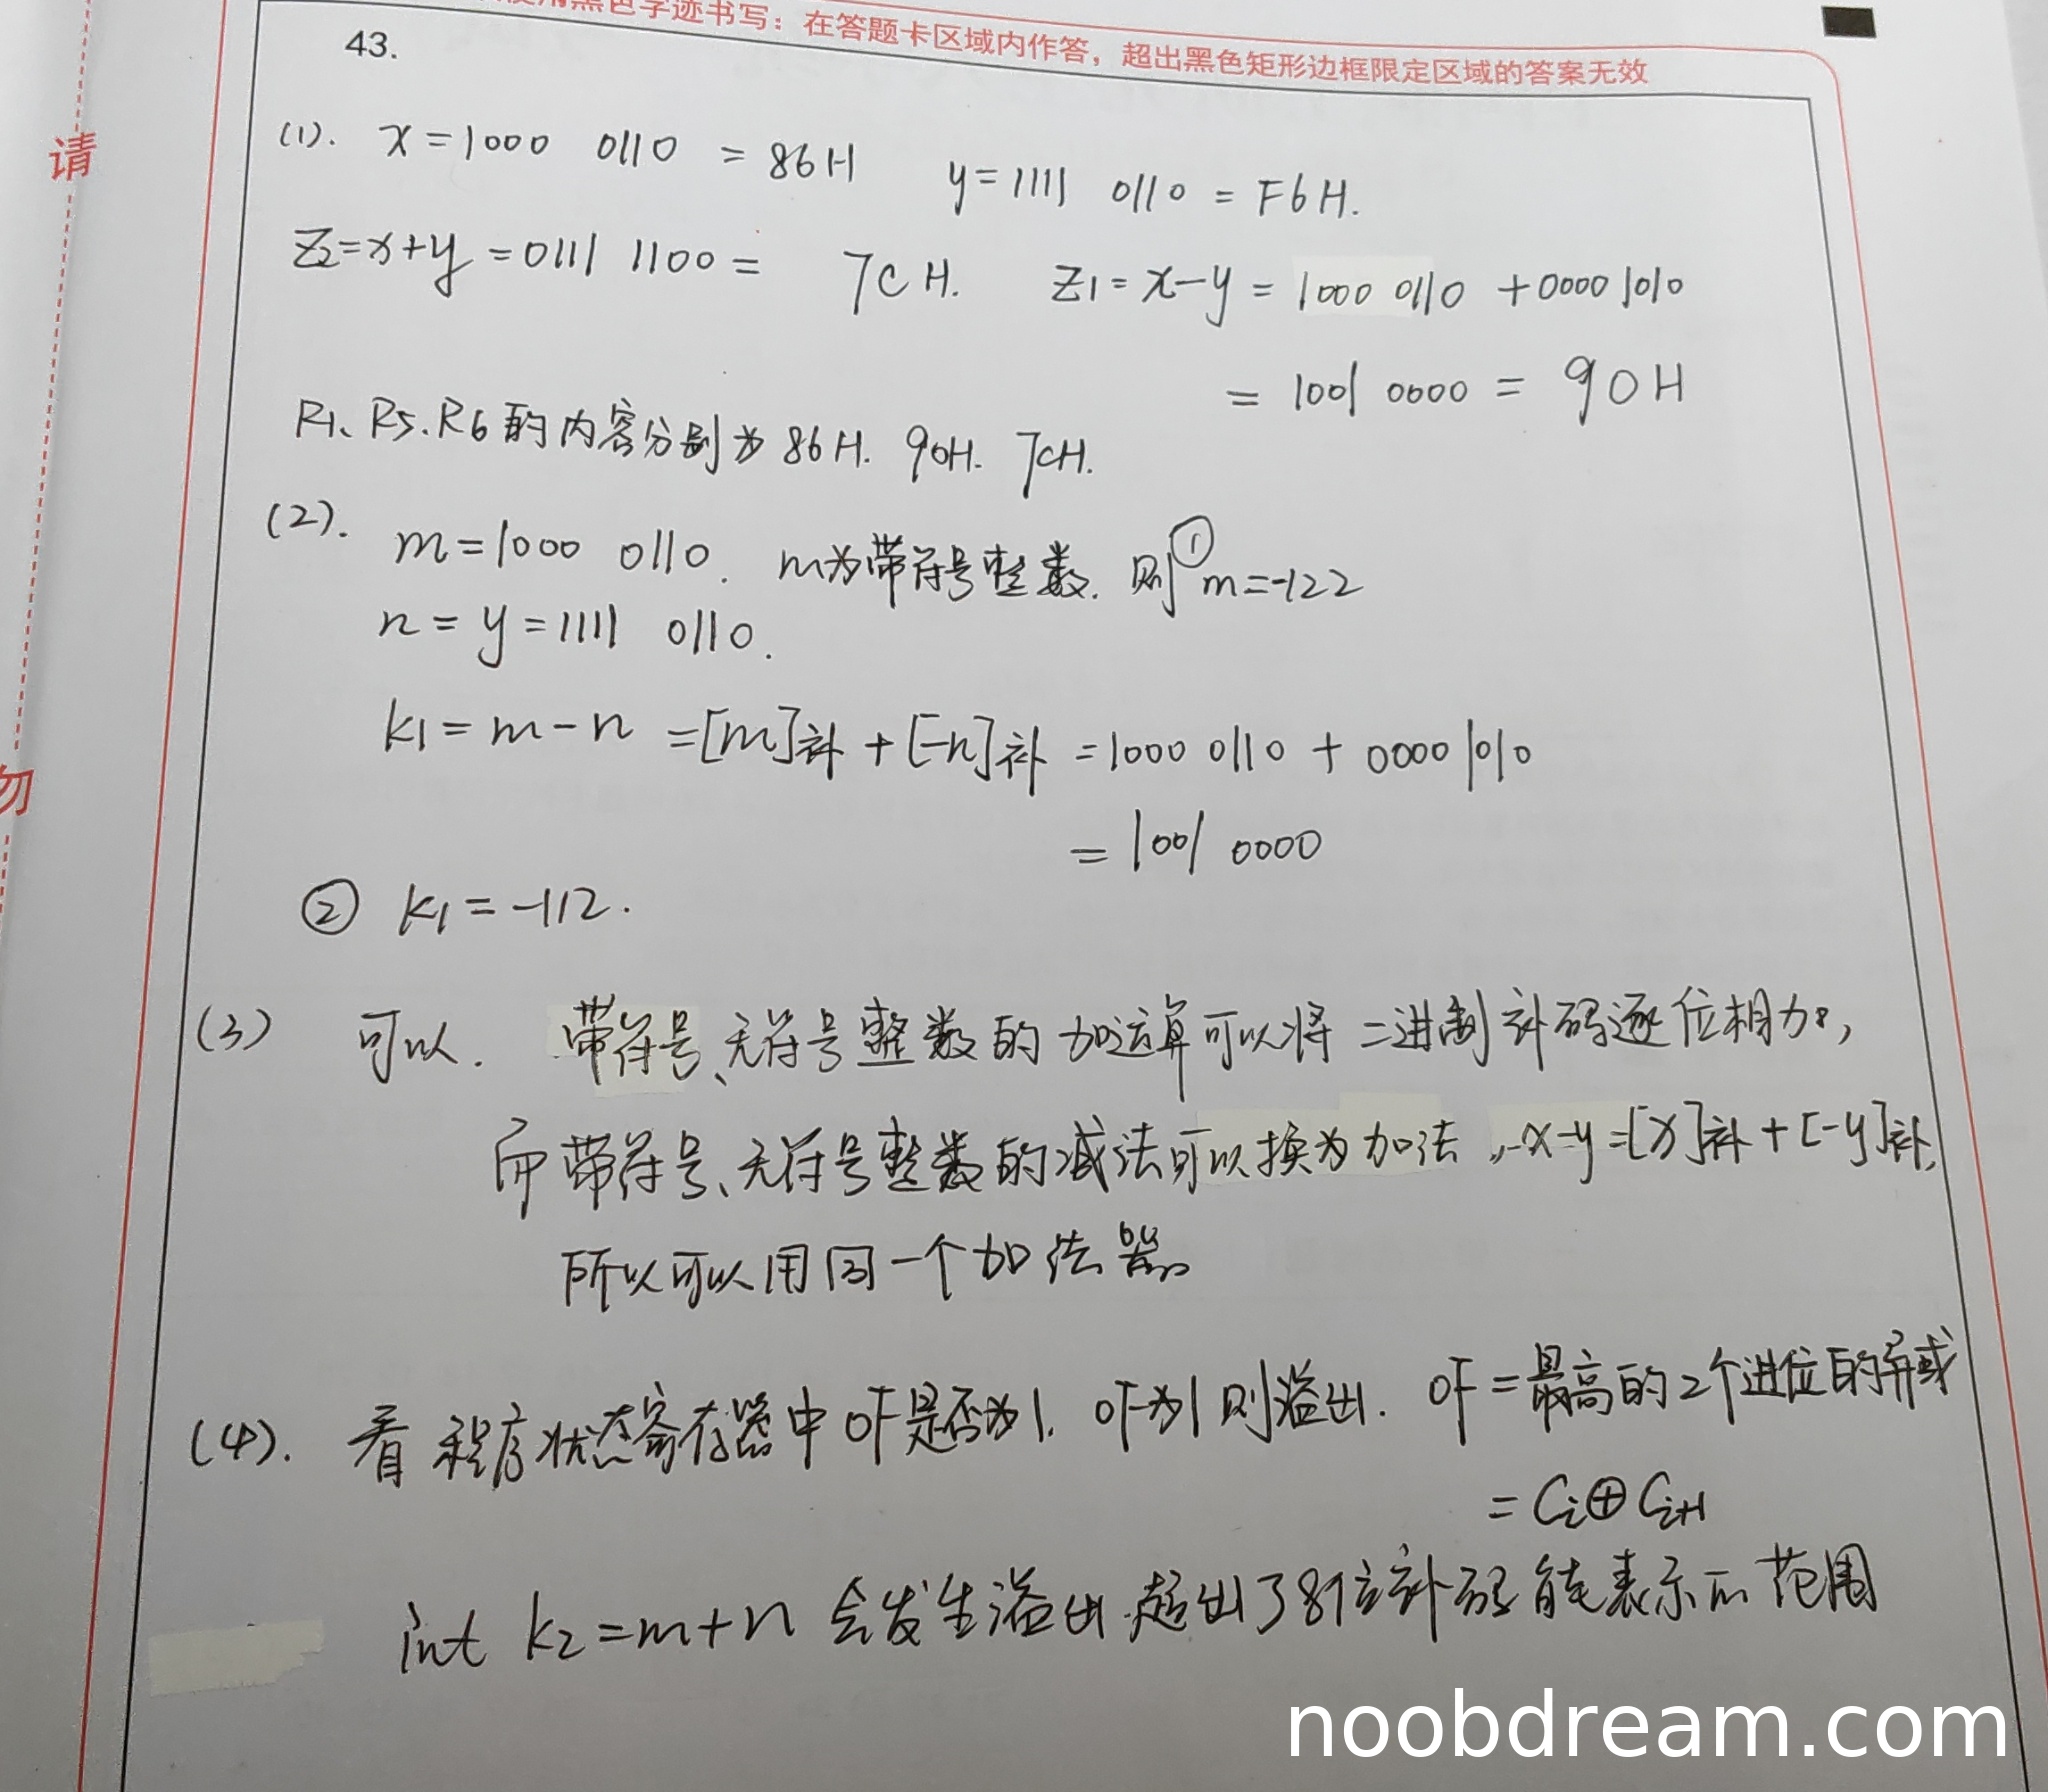 使用黑色字迹书写：在答题卡区域内作答，超出黑色矩形边框限定区域的答案无效
43.
请
(1). x=1000 0110 = 86H y=1111 0110 = F6H.
Z2=x+y=0111 1100= 7CH. Z1=x-y=1000 0110 +0000 1010
= 1001 0000 = 90H
R1、R5、R6的内容分别为86H. 90H. 7CH.
(2). m=1000 0110. m为带符号整数. 则①m=-122
n=y=1111 0110.
勿
k1=m-n=[m]补+[-n]补=1000 0110+0000 1010
=1001 0000
② k1=-112.
(3) 可以. 带符号、无符号整数的加运算可以将二进制补码逐位相加，
而带符号、无符号整数的减法可以换为加法，x-y=[x]补+[-y]补，
所以可以用同一个加法器
(4). 看程序状态寄存器中OF是否为1. OF为1则溢出. OF=最高的2个进位的异或
=Ci⊕Ci+1
int k2=m+n 会发生溢出.超出了8位补码能表示的范围
noobdream.com